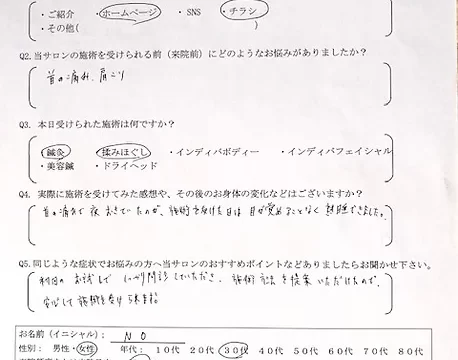 ・ご紹介 ・ホームページ ・SNS ・チラシ
・その他( )
Q2.当サロンの施術を受けられる前(来院前)にどのようなお悩みがありましたか?
首の痛み、肩こり
Q3. 本日受けられた施術は何ですか?
・鍼灸 ・揉みほぐし ・インディバボディー ・インディバフェイシャル
・美容鍼 ・ドライヘッド
Q4. 実際に施術を受けてみた感想や、その後のお身体の変化などはございますか?
首の痛みで夜 おきていたのが、施術を受けた日は 目が覚めることなく 熟睡できました。
Q5.同じような症状でお悩みの方へ当サロンのおすすめポイントなどありましたらお聞かせ下さい。
初回の お試しで しっかり問診していただき、施術方法を提案 いただけたので、
安心して施術を受け
お名前(イニシャル): N O
性別: 男性・女性 年代: 10代 20代 30代 40代 50代 60代 70代 80代